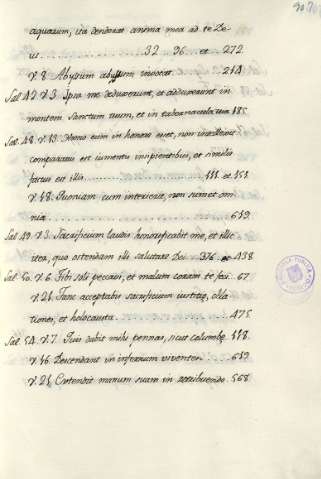 aquarum, ita desiderat anima mea ad te De-
us ........ 32 96 et 272
v. 8. Abyssum abyssum invocat. ...... 214
Sal. 42. v. 3. Ipsa me deduxerunt, et adduxerunt in
montem Sanctum tuum, et in tabernacula tua 185
Sal. 48. v. 13. Homo cum in honore esset, non intellexit
comparatus est iumentis insipientibus, et similis
factus est illis ........ 111. et 151
v. 18. Quoniam cum interierit, non sumet om
nia ........ 619
Sal. 49. v. 23. Sacrificium laudis honorificabit me, et illic
iter, quo ostendam illi salutare Dei 376. et 438
Sal. 50. v. 6. Tibi soli peccavi, et malum coram te feci. 67
v. 21. Tunc acceptabis sacrificium iustitiæ, obla
tiones, et holocausta ........ 475
Sal. 54. v. 7. Quis dabit mihi pennas, sicut columbæ 118.
v. 16. Descendant in infernum viventes. 619
v. 21. Extendit manum suam in retribuendo. 568